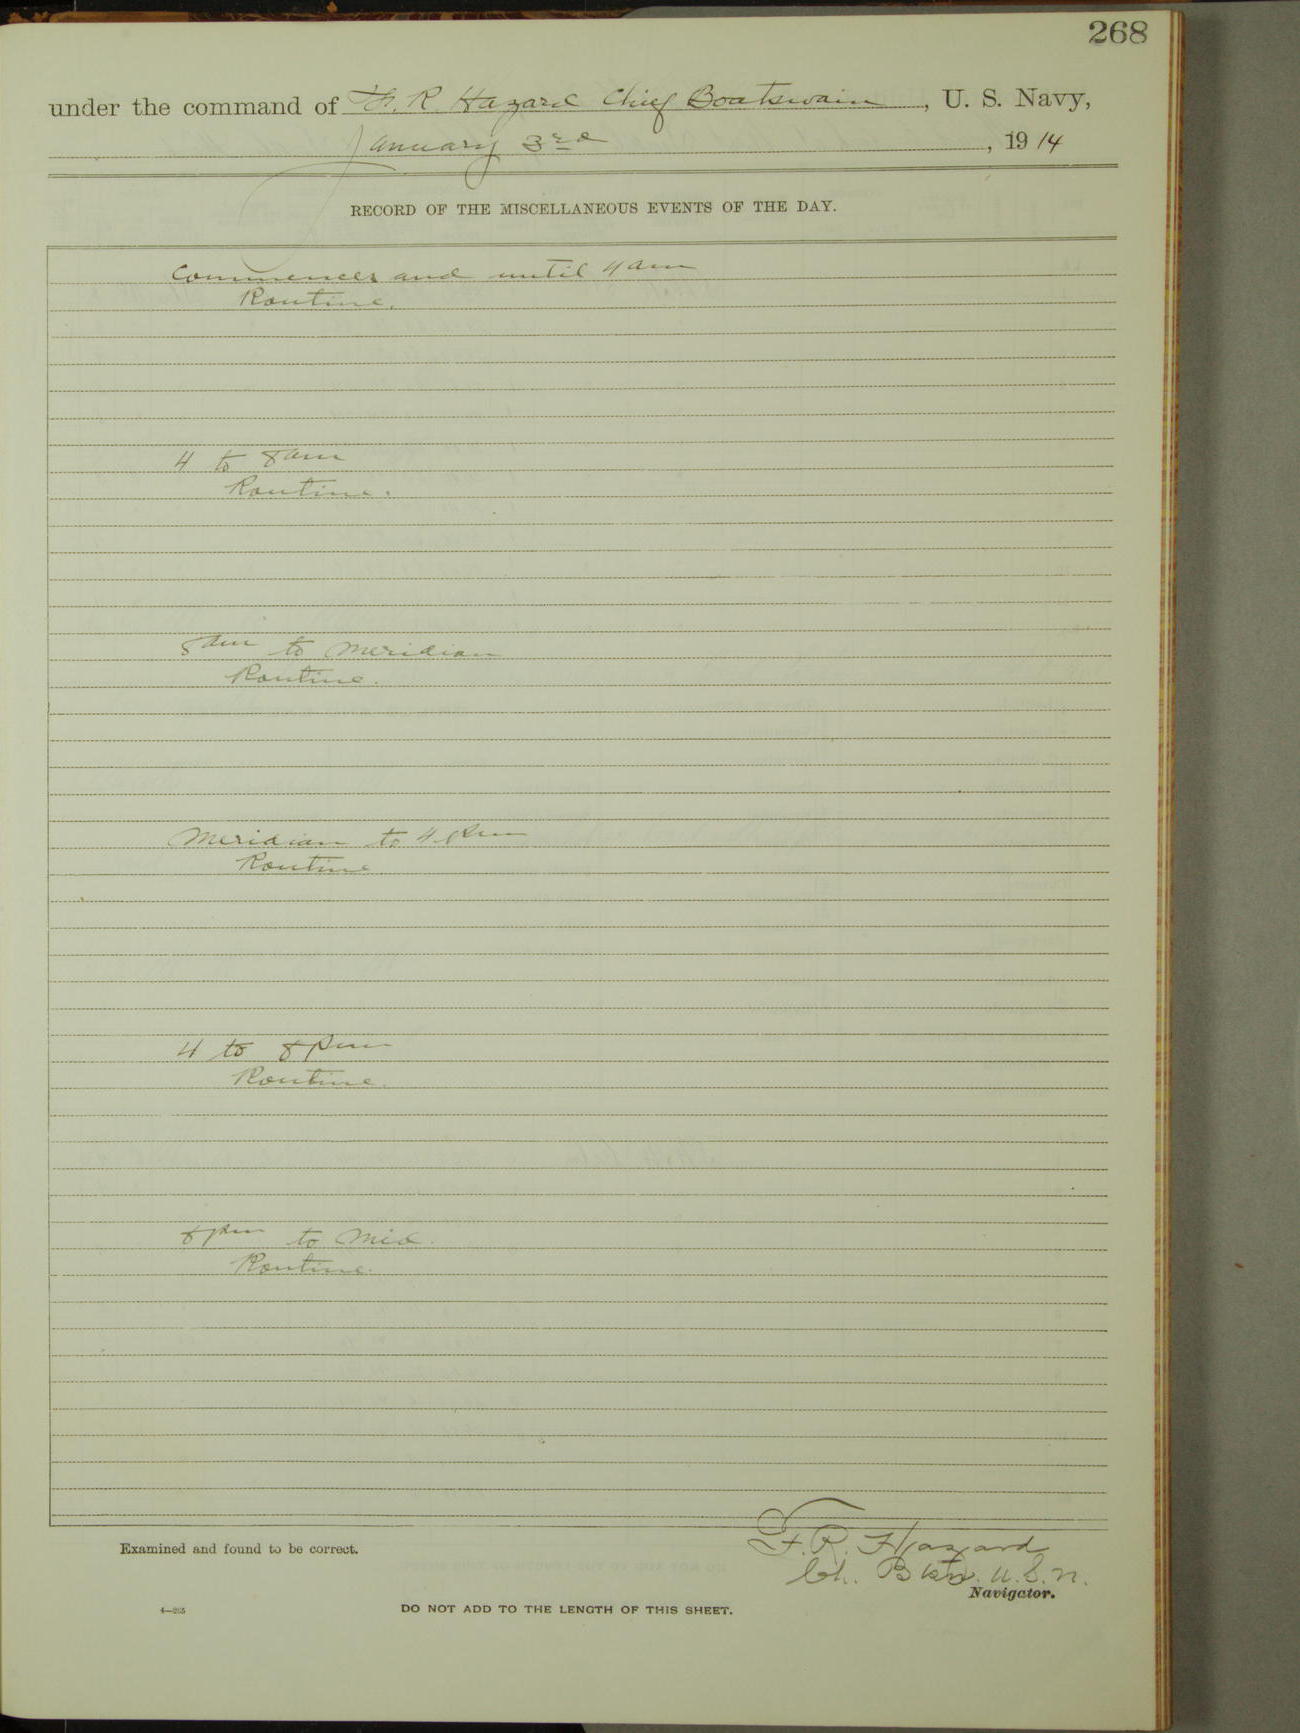 268
under the command of F. R. Hazard Chief Boatswain, U. S. Navy,
January 3rd, 1914
RECORD OF THE MISCELLANEOUS EVENTS OF THE DAY.
Commences and until 4 am
Routine.
4 to 8 am
Routine.
8 am to Meridian
Routine.
Meridian to 4 pm
Routine
4 to 8 pm
Routine.
8 pm to Mid.
Routine.
Examined and found to be correct.
F. R. Hazard
Ch. Btsn. U.S.N.
Navigator.
4—265
DO NOT ADD TO THE LENGTH OF THIS SHEET.